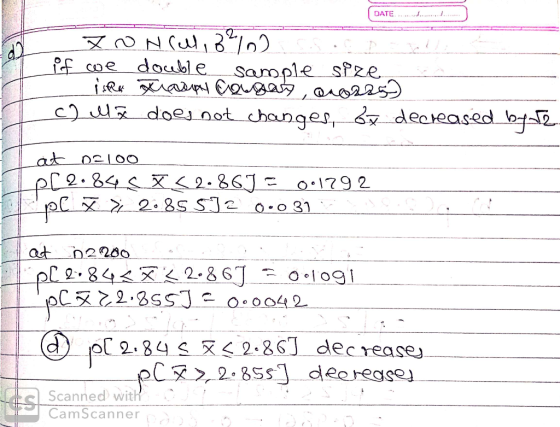 DATE
d) X̄ ~ N(μ, σ²/n)
if we double sample size
i.e.
c) μx̄ does not changes, σx̄ decreased by √2
at n=100
p[2.84 ≤ X̄ ≤ 2.86] = 0.1792
p[ X̄ ≥ 2.855] = 0.031
at n=200
p[2.84 ≤ X̄ ≤ 2.86] = 0.1091
p[X̄ ≥ 2.855] = 0.0042
(d) p[2.84 ≤ X̄ ≤ 2.86] decreases
p[X̄ ≥ 2.855] decreases
CS Scanned with
CamScanner